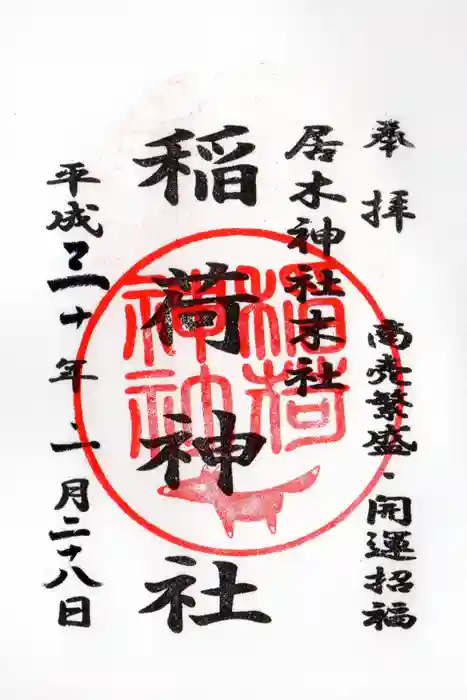 奉拝
商売繁盛・開運招福
居木神社末社
稲荷神社
稲荷
神社
平成三十年二月二十八日